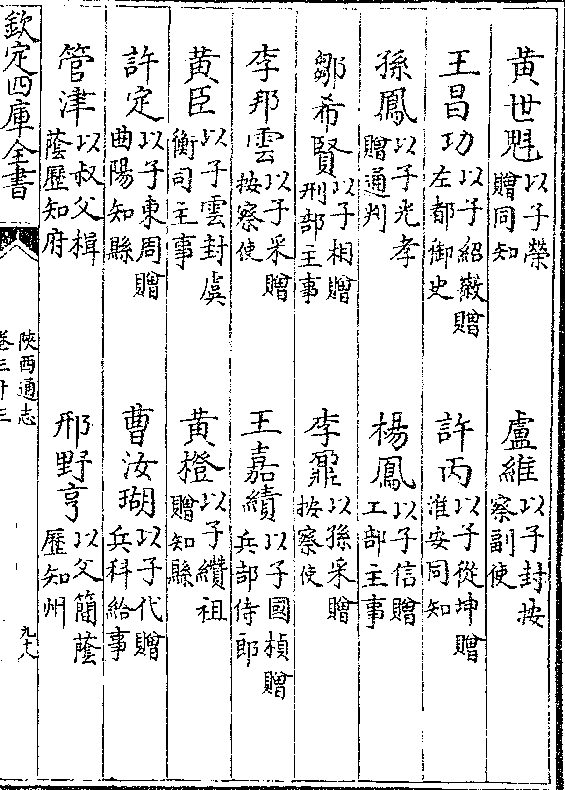 黃世魁以子榮贈同知　盧維以子封按察副使
王昌功以子紹徽贈左都御史　許丙以子從坤贈淮安同知
孫鳳以子光孝贈通判　楊鳳以子信贈工部主事
鄒希賢以子相贈刑部主事　李以孫采贈按察使
李邦雲以子采贈按察使　王嘉績以子國楨贈兵部侍郎
黃臣以子雲封虞衡司主事　黃橙以子纘祖贈知縣
許定以子東周贈曲陽知縣　曹汝瑚以子代贈兵科給事
管津以叔父楫蔭歷知府　邢野亨以父簡蔭歷知州
欽定四庫全書
陝西通志
卷三十三
九十八